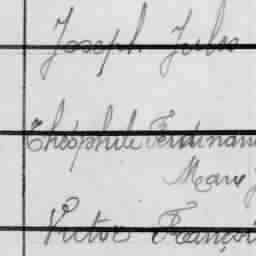 Joseph Jules
Théophile Ferdinand
Marie J
Victor François